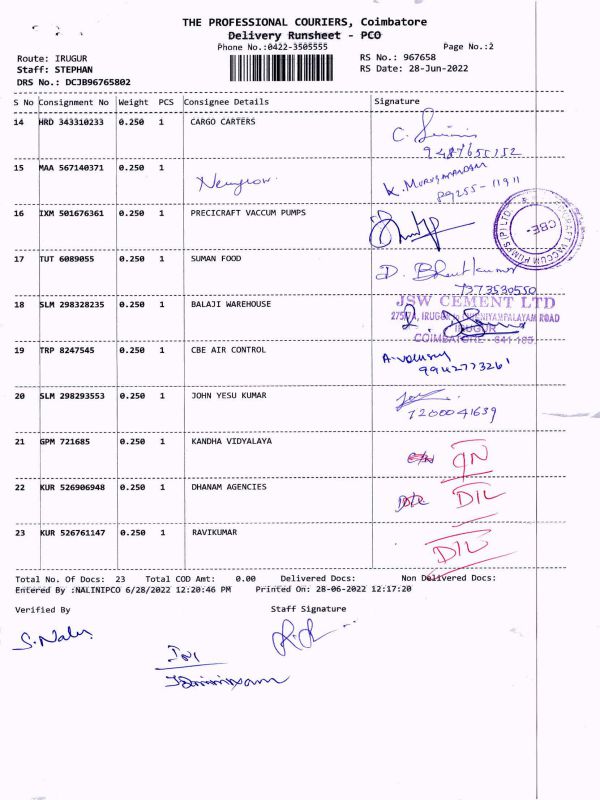 THE PROFESSIONAL COURIERS, Coimbatore
Delivery Runsheet - PCO
Phone No.:0422-3505555 Page No.:2
Route: IRUGUR RS No.: 967658
Staff: STEPHAN RS Date: 28-Jun-2022
DRS No.: DCJB96765802
S No Consignment No Weight PCS Consignee Details Signature
14 HRD 343310233 0.250 1 CARGO CARTERS
9487655152
15 MAA 567140371 0.250 1 K. Muruganandam
89255-11911
16 IXM 501676361 0.250 1 PRECICRAFT VACCUM PUMPS
CBE-
17 TUT 6089055 0.250 1 SUMAN FOOD D. Bharatkumar
7373530550
18 SLM 298328235 0.250 1 BALAJI WAREHOUSE JSW CEMENT LTD
IRUGUR
COIMBATORE - 641 103.
19 TRP 8247545 0.250 1 CBE AIR CONTROL
9942773261
20 SLM 298293553 0.250 1 JOHN YESU KUMAR
7200041639
21 GPM 721685 0.250 1 KANDHA VIDYALAYA
22 KUR 526906948 0.250 1 DHANAM AGENCIES DIL
23 KUR 526761147 0.250 1 RAVIKUMAR DIL
Total No. Of Docs: 23 Total COD Amt: 0.00 Delivered Docs: Non Delivered Docs:
Entered By :NALINIPCO 6/28/2022 12:20:46 PM Printed On: 28-06-2022 12:17:20
Verified By Staff Signature